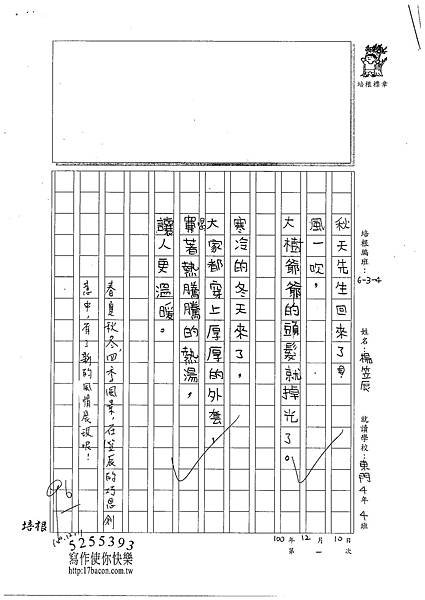 培根標章
培根編班：6-3-4 姓名：楊笠辰 就讀學校：東門4年4班
秋天先生回來了，
風一吹，
大樹爺爺的頭髮就掉光了。
寒冷的冬天來了，
大家都穿上厚厚的外套，
喝著熱騰騰的熱湯，
讓人更溫暖。
春夏秋冬，四季風景，在笠辰的巧思創
意中，有了新的風情展演哦！
96
100年12月10日
第一次
培根
5255393
寫作使你快樂
http:17bacon.com.tw